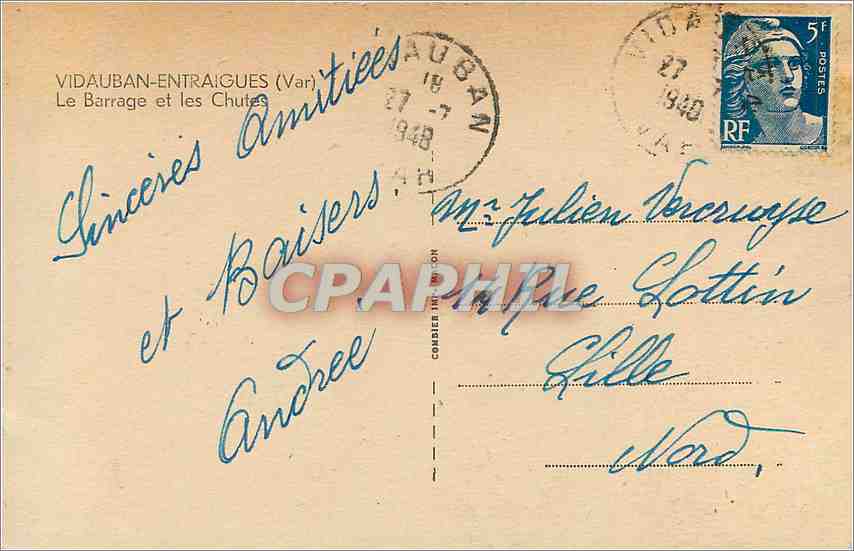 VIDAUBAN-ENTRAIGUES (Var)
Le Barrage et les Chutes
Sincères Amitiées
et Baisers
Andrée
AUBAN
18
27 -7
1948
VIDAUBAN
27
1948
VAR
5F
POSTES
RF
CPARHIL
COMBIER IMP. MACON
Mr Julien Vercruyse
Rue Lottin
Lille
Nord,